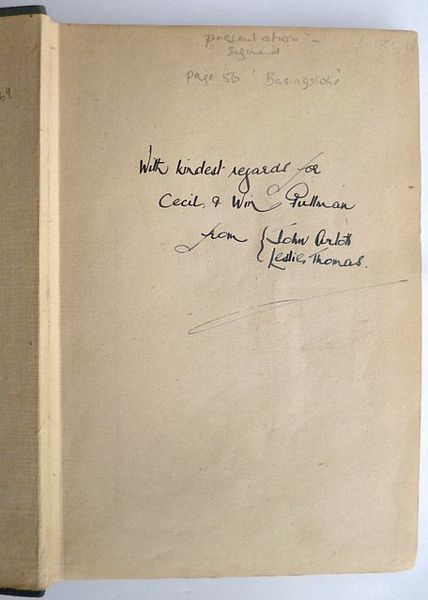 presentation -
signed
page 56 ' Basingstoke '
69
With kindest regards for
Cecil & Win Pullman
from { John Arlott
Leslie Thomas.